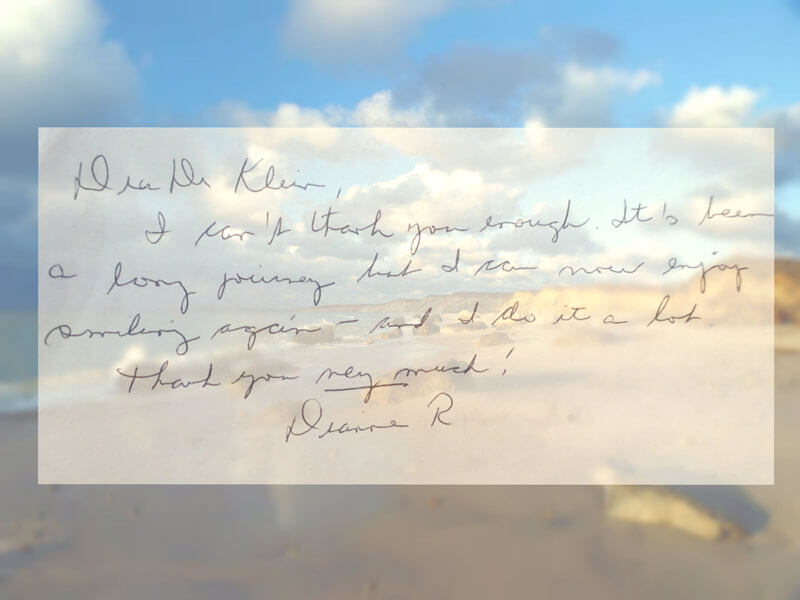 Dear Dr Klein,
I can't thank you enough. It's been
a long journey but I can now enjoy
smiling again - and I do it a lot.
Thank you very much!
Dianne R